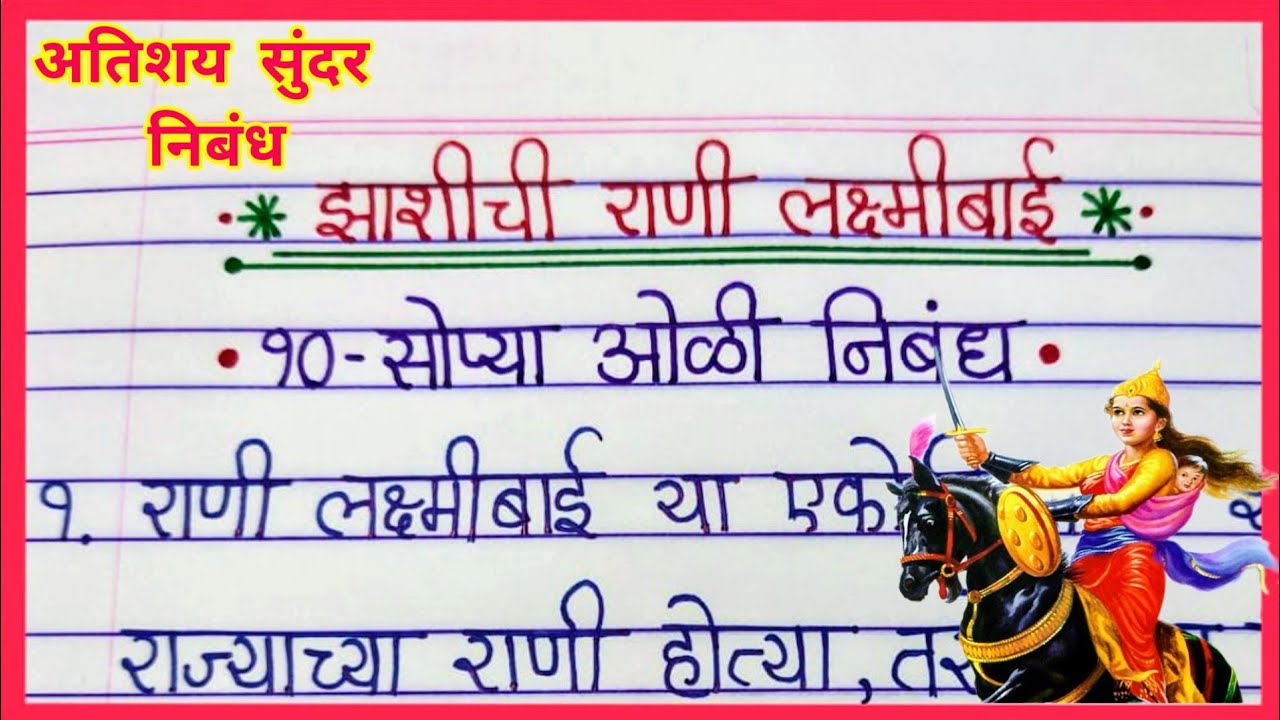 अतिशय सुंदर
निबंध
झाशीची राणी लक्ष्मीबाई
१०-सोप्या ओळी निबंध
१. राणी लक्ष्मीबाई या
राज्याच्या राणी होत्या,